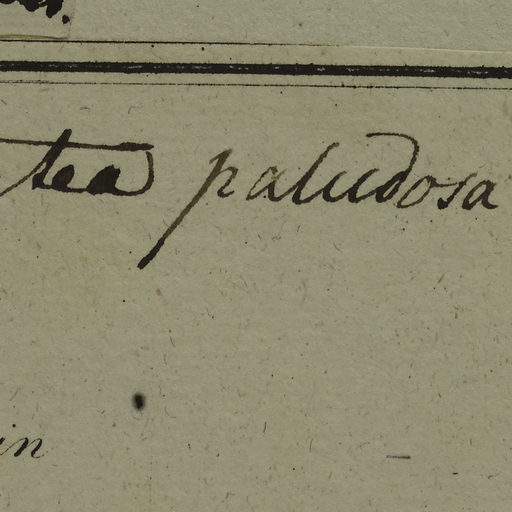 tea paludosa
in